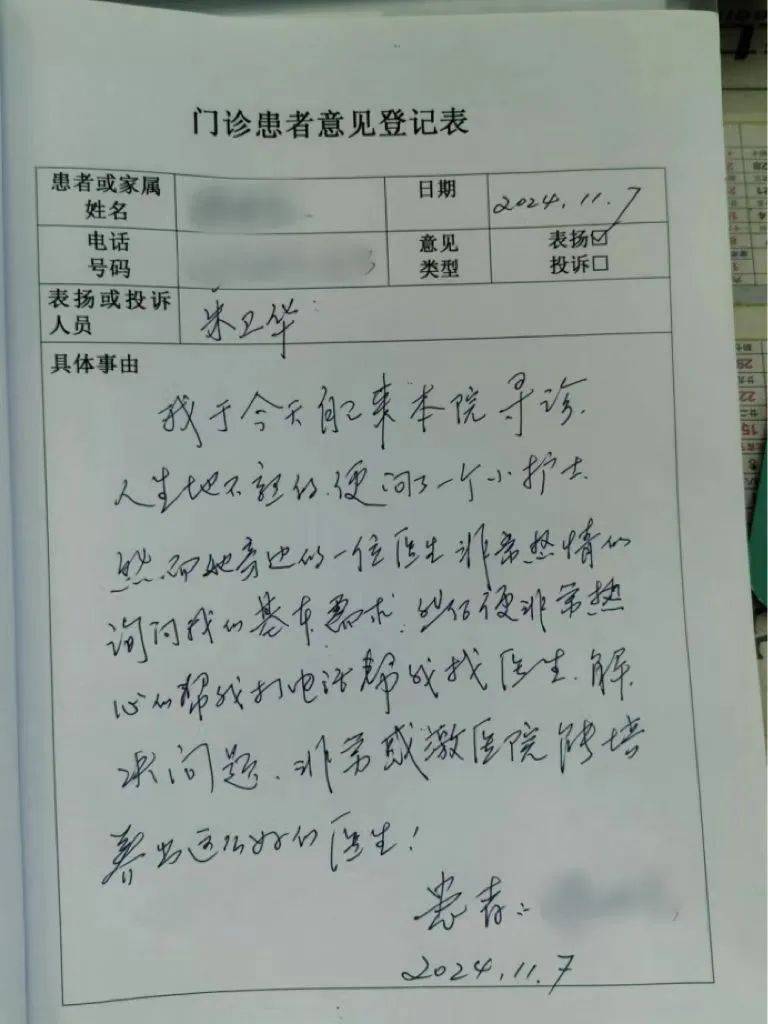 门诊患者意见登记表
患者或家属姓名
日期 2024.11.7
电话号码
意见类型 表扬☑
投诉☐
表扬或投诉人员 朱卫华:
具体事由
我于今天自己来本院寻诊.
人生地不熟的.便问了一个小护士
然而她旁边的一位医生非常热情的
询问我的基本需求.然后便非常热
心的帮我打电话帮我找医生.解
决问题.非常感激医院能培
养出这么好的医生!
患者:
2024.11.7